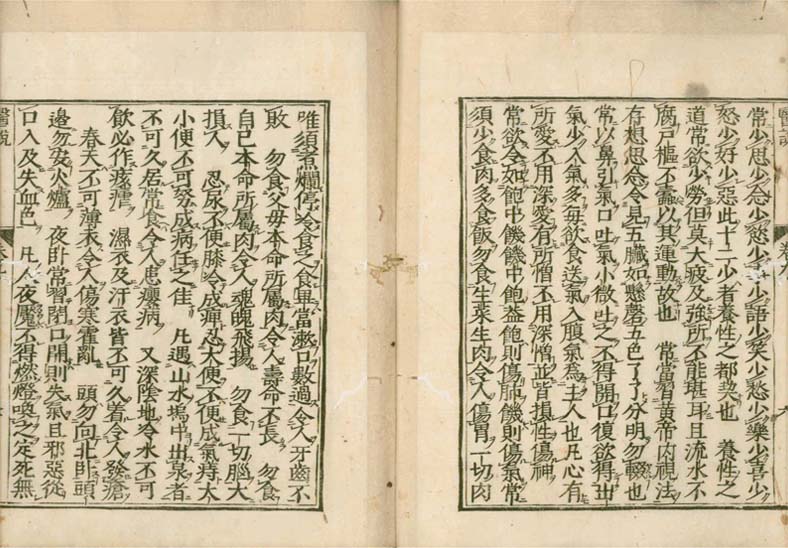 常少思少念少慾少事少語少笑少愁少樂少喜少
怒少好少惡此十二少者養性之都契也　養性之
道常欲少勞但莫大疲及強所不能堪耳且流水不
腐戸樞不蠹以其運動故也　常當習黄帝内視法
存想思念令見五臓如懸磬五色了了分明勿輟也
常以鼻引氣口吐氣小微吐之不得開口復欲得出
氣少入氣多每欲食送氣入腹氣爲主人也凡心有
所愛不用深愛有所憎不用深憎並皆損性傷神
常欲令如飽中饑饑中飽蓋飽則傷肺饑則傷氣常
須少食肉多食飯勿食生菜生肉令人傷胃一切肉
唯須煮爛停冷食之食畢當漱口數過令人牙齒不
敗　勿食父母本命所屬肉令人壽命不長　勿食
自己本命所屬肉令人魂魄飛揚　勿食一切腦大
損人　忍尿不便膝冷成痺忍大便不便成氣痔大
小便不可努成病任之佳　凡遇山水塢中出泉者
不可久居常食令人患癭病　又深陰地冷水不可
飲必作痎瘧　濕衣及汗衣皆不可久着令人發瘡
春天不可薄衣令人傷寒霍亂　頭勿向北卧頭
邊勿安火爐　夜卧常習閉口開則失氣且邪惡從
口入及失血色　凡人夜魘不得燃燈喚之定死無
醫説